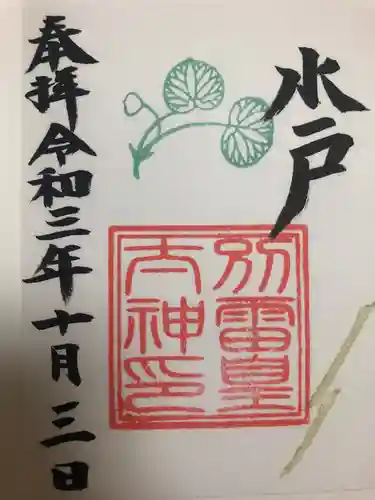 水戸
別雷皇
大神印
奉拝令和三年十月三日